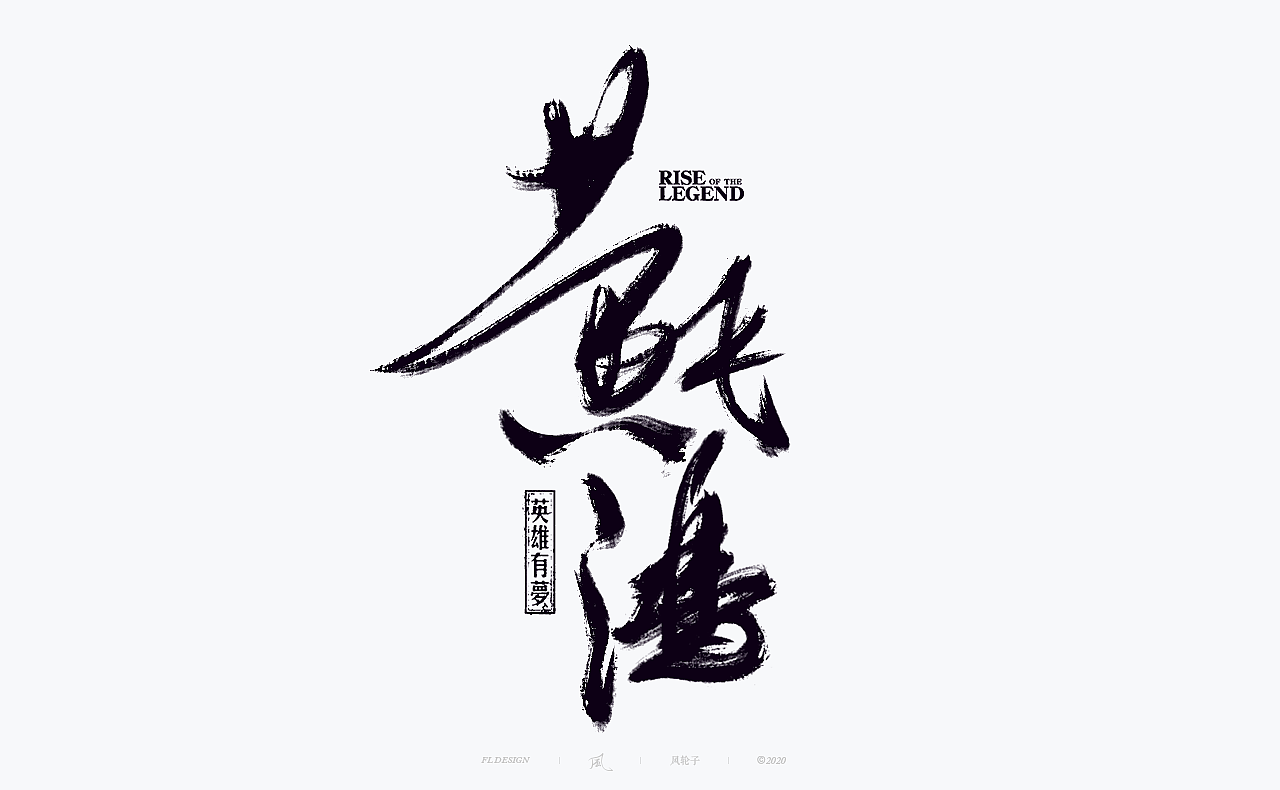 黄飛鴻
RISE OF THE
LEGEND
英雄有夢
FL DESIGN
風
风轮子
©2020